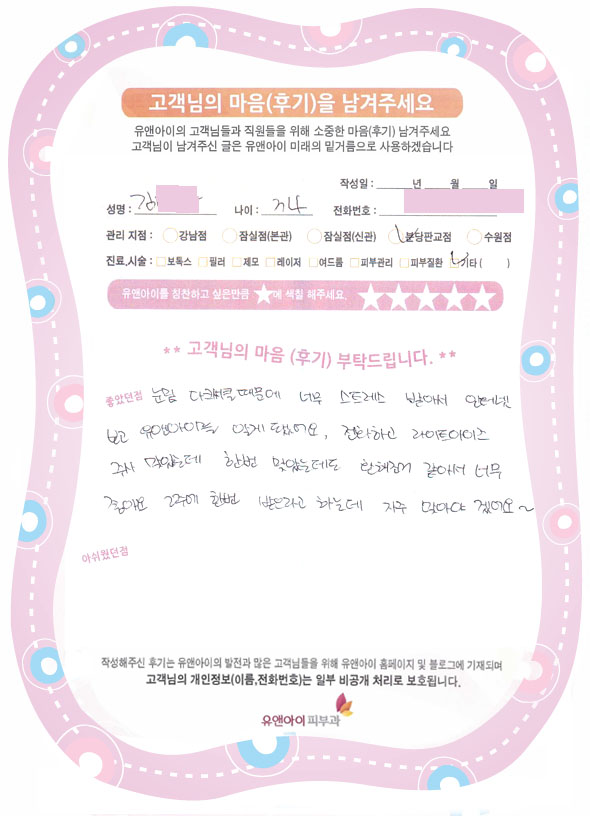 고객님의 마음(후기)을 남겨주세요
유앤아이의 고객님들과 직원들을 위해 소중한 마음(후기) 남겨주세요
고객님이 남겨주신 글은 유앤아이 미래의 밑거름으로 사용하겠습니다
작성일 : 년 월 일
성명 : 김 나이 : 전화번호 :
관리 지점 : 강남점 잠실점(본관) 잠실점(신관) 분당판교점 수원점
진료,시술 : 보톡스 필러 제모 레이저 여드름 피부관리 피부질환 기타 ( )
유앤아이를 칭찬하고 싶은만큼 ★에 색칠 해주세요. ★★★★★
** 고객님의 마음 (후기) 부탁드립니다. **
좋았던점 눈밑 다크써클때문에 너무 스트레스 받아서 인터넷
보고 유앤아이를 알게 됐어요, 전화하고 라이트아이즈
주사 맞았는데 한번 맞았는데도 환해진거 같아서 너무
좋아요 2주에 한번 받으라고 하는데 자주 맞아야 겠어요~
아쉬웠던점
작성해주신 후기는 유앤아이의 발전과 많은 고객님들을 위해 유앤아이 홈페이지 및 블로그에 기재되며
고객님의 개인정보(이름,전화번호)는 일부 비공개 처리로 보호됩니다.
유앤아이피부과